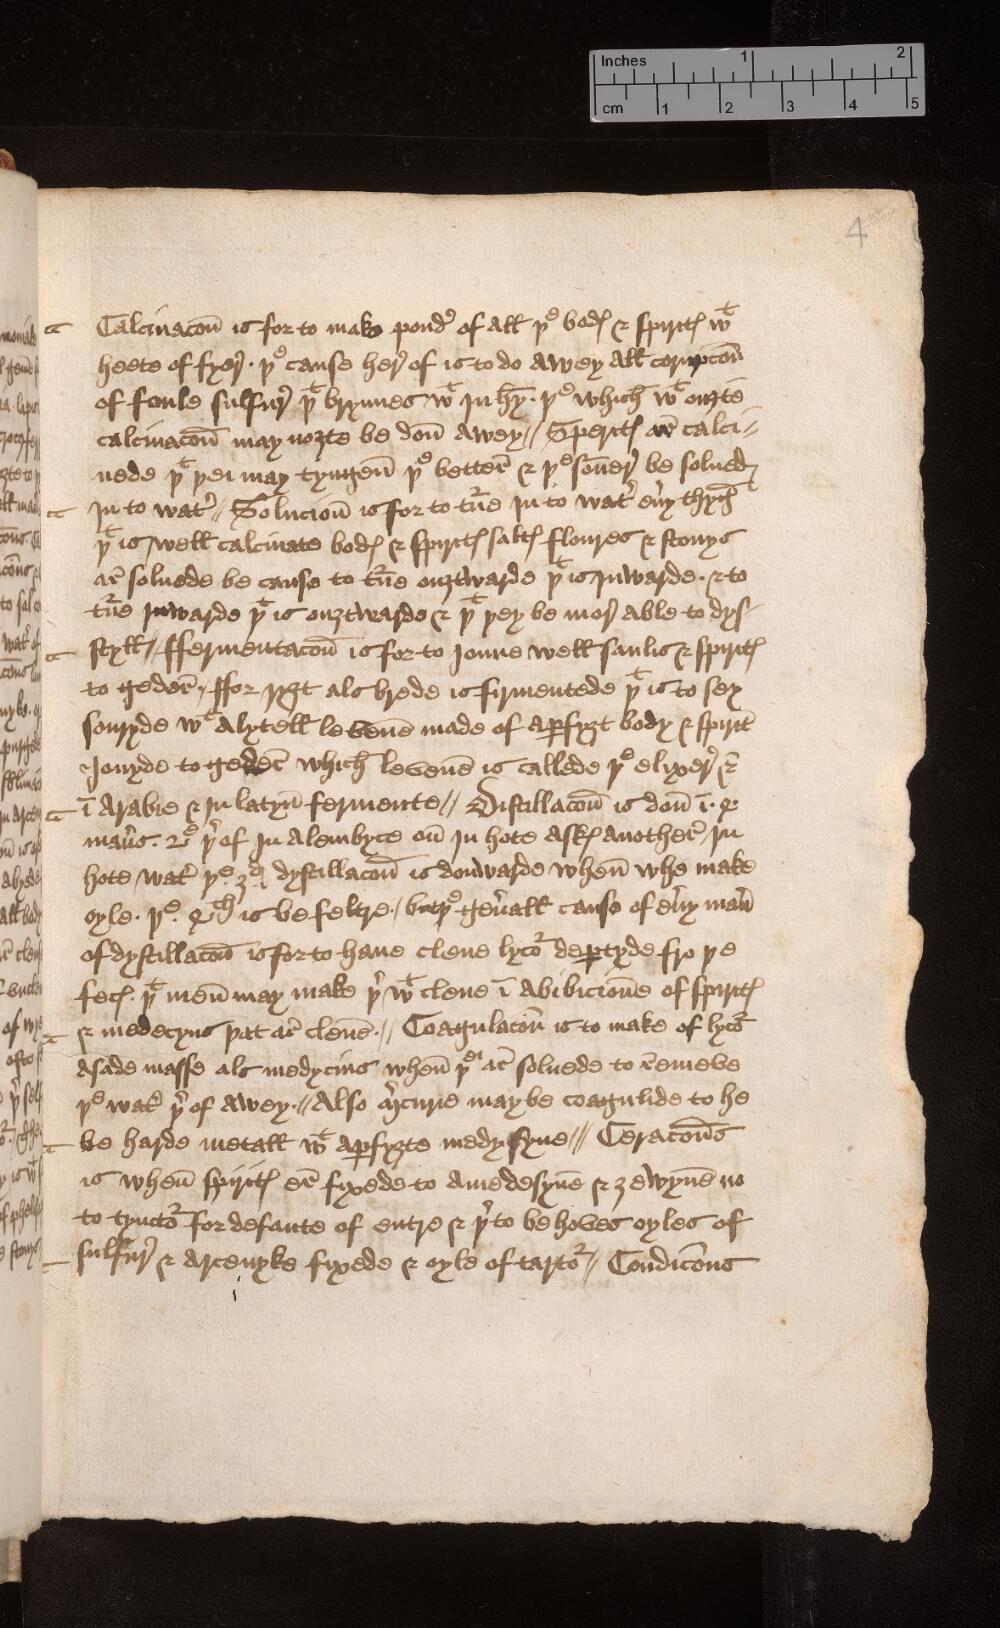 Inches 1 2
cm 1 2 3 4 5
4
Calcinacoū is for to make pondʾ of all þe bodꝭ & spiritꝭ wt
heete of fyerʾ. þe cause herʾ of is to do awey all corupcoū
of foule sulfurʾ þt brynnes wt in hȳ. þe which wt ouȝte
calcinacoū may noȝte be doū awey // Speritꝭ ar̄ calci//
nede þt þei may tyngeū þe better̄ & þe sōnerʾ be solued
in to watʾ // Solucioū is for to tʾne in to watʾ eūy thyng
þt is well calcinate bodꝭ & spiritꝭ saltꝭ floures & stonys
ar̄ soluede be cause to tʾne ouȝtwarde þt is inwarde. & to
tʾne inwarde þt is ouȝtwarde & þt þey be morʾ able to dys-
styll // ffermentacoū is for to Ioune well saulis & spiritꝭ
to geder̄. ffor ryȝt als brede is firmentede þt is to sey
souryde wt alytell levenē made of aꝑfyȝt body & spirit
Ionyde to geder̄ which levenē is callede þe elixerʾ &
ī Arabie & in latyn̄ fermente // Distillacoū is doū ī.
manʾs. þʾof in alembyce oū in hote askꝭ anotherʾ in
hote watʾ þe 3d dystillacoū is donwarde wheū whe make
oyle. þe is be feltre / but þe genʾall cause of eūy manʾ
of dystillacoū is for to haue clene lycoʾ deꝑtyde fro þe
fecꝭ. þt meū may make þʾ wt clene ī abibicionē of spiritꝭ
& medecyns þat ar̄ clenē. // Coagulacoū is to make of lycoʾ
asade masse als medycins wheū þei ar̄ soluede to r̄emeve
þe watʾ þʾ of awey. // Also mʾcurie may be coagulide to he
be harde metall wt aꝑfyȝte medysyne /// Ceracoūs
is wheū spiritꝭ er̄ fixede to amedesynē & ȝewynē no
to tynctoʾ for defaute of entre & þʾto be hoves oyles of
sulfurʾ & arcenyke fixede & oyle of tartoʾ // Condicōns